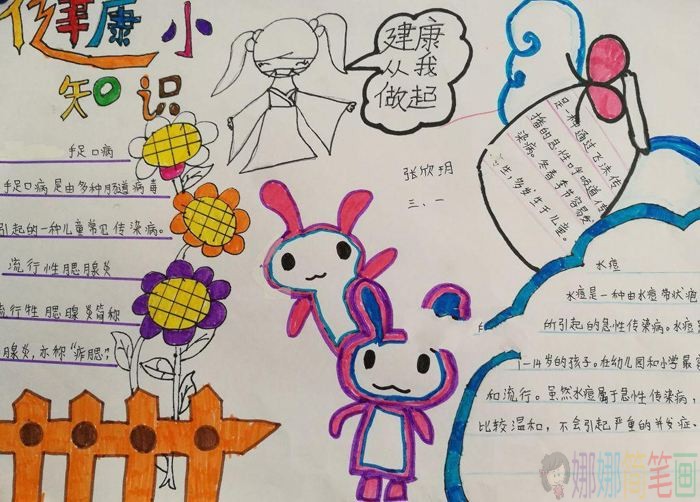 健康小
知识
建康
从我
做起
张欣玥
三、一
手足口病
手足口病是由多种肠道病毒
引起的一种儿童常见传染病。
流行性腮腺炎
流行性腮腺炎简称
腮腺炎，亦称“痄腮”
是一种通过飞沫传
播的急性呼吸道传
染病。冬春季节容易发
生，多发生于儿童。
水痘
水痘是一种由水痘带状疱
所引起的急性传染病。水痘
1-14岁的孩子。在幼儿园和小学最
和流行。虽然水痘属于急性传染病，
比较温和，不会引起严重的并发症。
娜娜简笔画